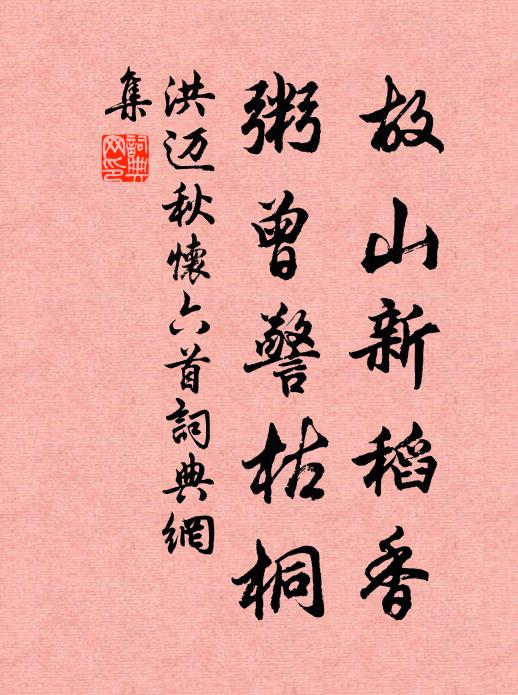 故山新稻香
粥曾警枯桐
洪迈秋懷六首詞典網
集
詞典網印